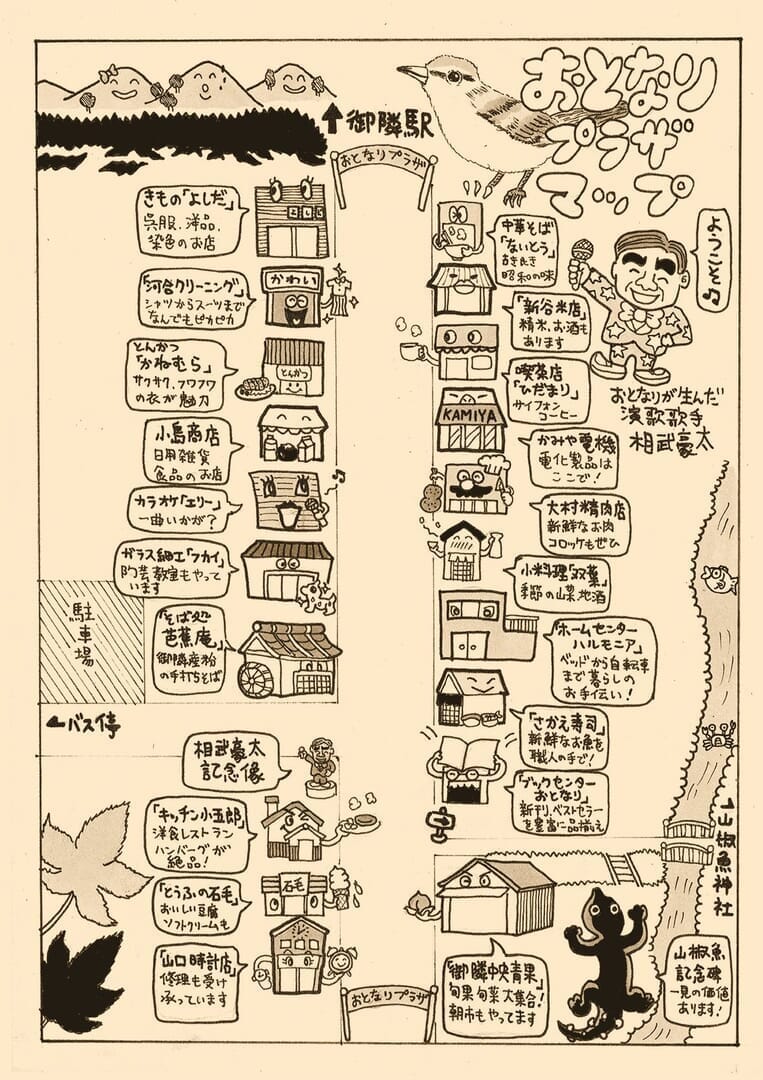 おとなり
プラザ
マップ
↑御隣駅
おとなりプラザ
ようこそ♪
おとなりが生んだ
演歌歌手
相武豪太
きもの「よしだ」
呉服、洋品、
染色のお店
よしだ
「河合クリーニング」
シャツからスーツまで
なんでもピカピカ
かわい
とんかつ
「かねむら」
サクサク、フワフワ
の衣が魅力
とんかつ
小島商店
日用雑貨
食品のお店
カラオケ「エリー」
一曲いかが?
ガラス細工「フカイ」
陶芸教室もやって
います
「そば処
芭蕉庵」
御隣産粉
の手打ちそば
駐車場
←バス停
相武豪太
記念像
「キッチン小五郎」
洋食レストラン
ハンバーグが
絶品!
「とうふの石毛」
おいしい豆腐
ソフトクリームも
石毛
「山口時計店」
修理も受け
承っています
中華そば
「ないとう」
古き良き
昭和の味
「新谷米店」
精米、お酒も
あります
喫茶店
「ひだまり」
サイフォン
コーヒー
KAMIYA
かみや電機
電化製品は
ここで!
大村精肉店
新鮮なお肉
コロッケもぜひ
小料理「双葉」
季節の山菜、地酒
「ホームセンター
ハルモニア」
ベッドから自転車
まで暮らしの
お手伝い!
「さかえ寿司」
新鮮なお魚を
職人の手で!
「ブックセンター
おとなり」
新刊、ベストセラー
を豊富に品揃え
→山椒魚神社
「御隣中央青果」
旬果旬菜大集合!
朝市もやってます
山椒魚
記念碑
一見の価値
あります!
おとなりプラザ